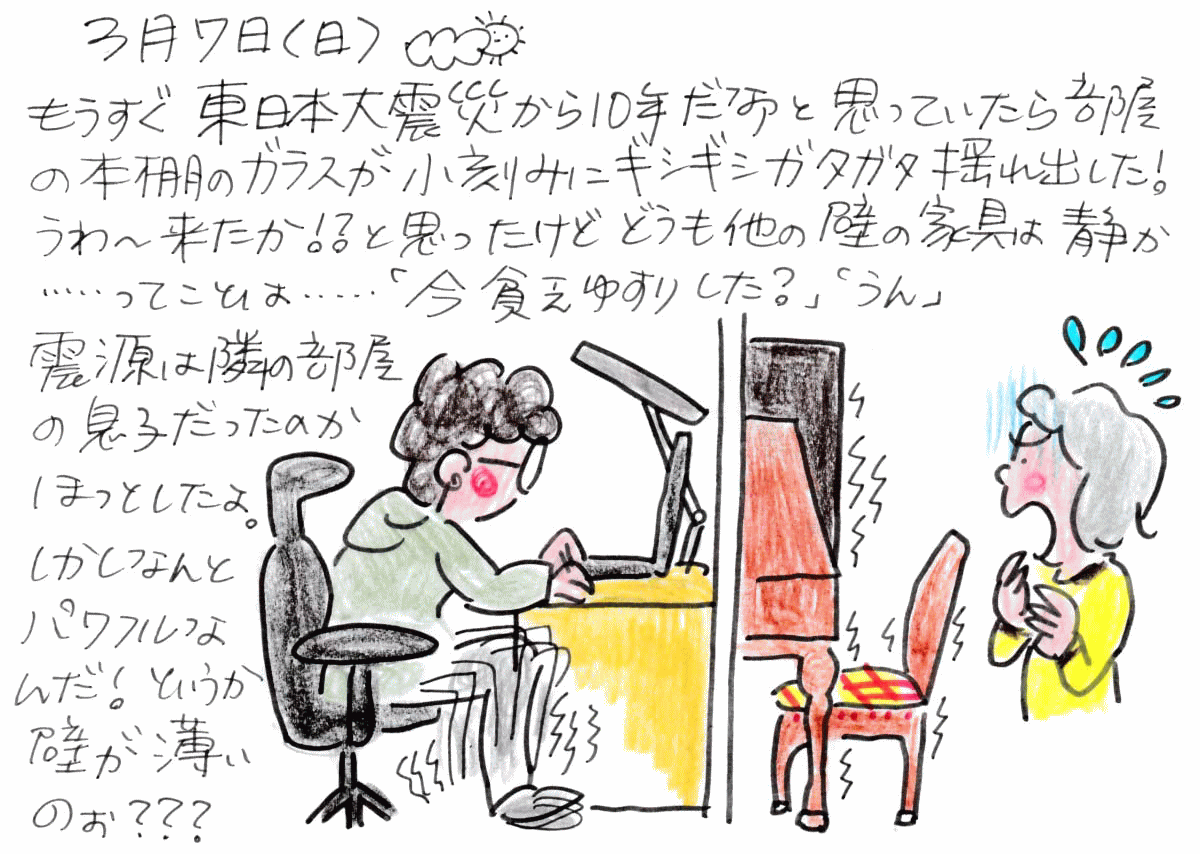 3月7日(日)
もうすぐ 東日本大震災から10年だなあと思っていたら部屋
の本棚のガラスが小刻みにギシギシガタガタ揺れ出した!
うわ〜来たか!?と思ったけど どうも他の壁の家具は静か
……ってことは……「今貧乏ゆすりした?」「うん」
震源は隣の部屋
の息子だったのか
ほっとしたよ。
しかしなんと
パワフルな
んだ!というか
壁が薄い
のぉ???